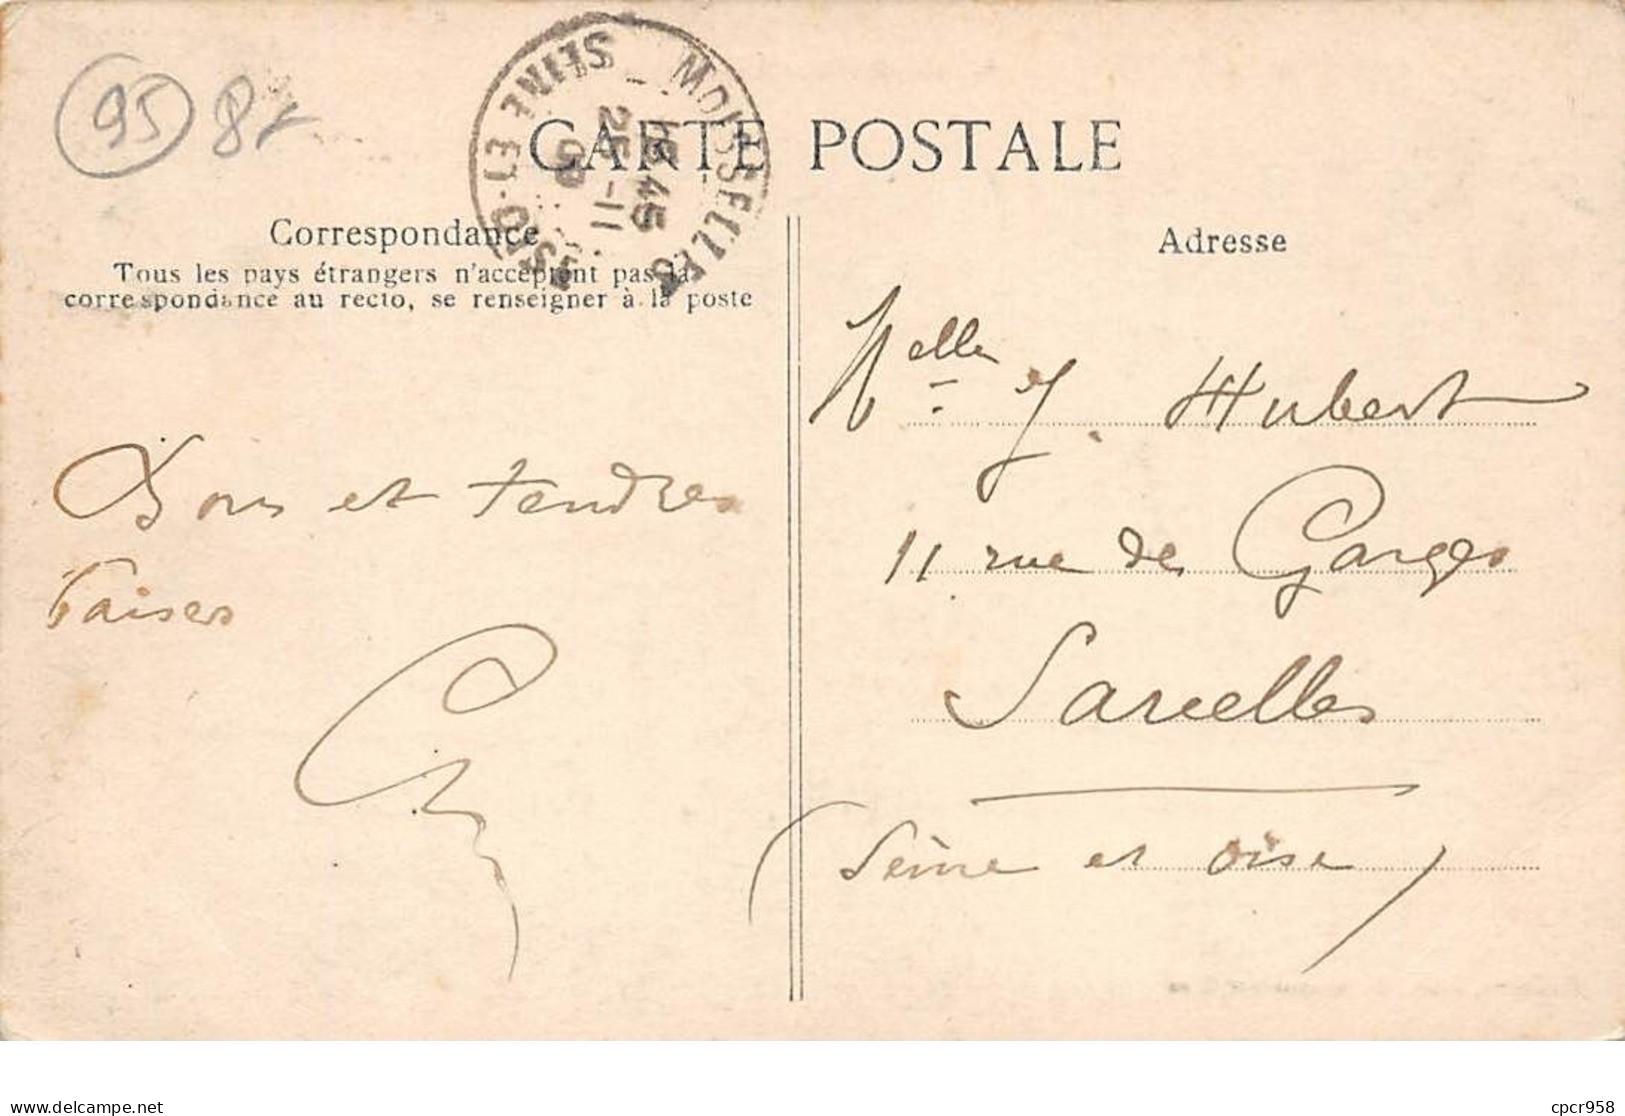 95 8
MOISSELLES
SEINE-ET-OISE
15 45
25 -11
09
CARTE POSTALE
Correspondance
Tous les pays étrangers n'acceptent pas la
correspondance au recto, se renseigner à la poste
Adresse
Melle J. Hubert
11 rue de Garges
Sarcelles
(Seine et Oise)
Bons et tendres
baisers
delcampe.net
cpcr958